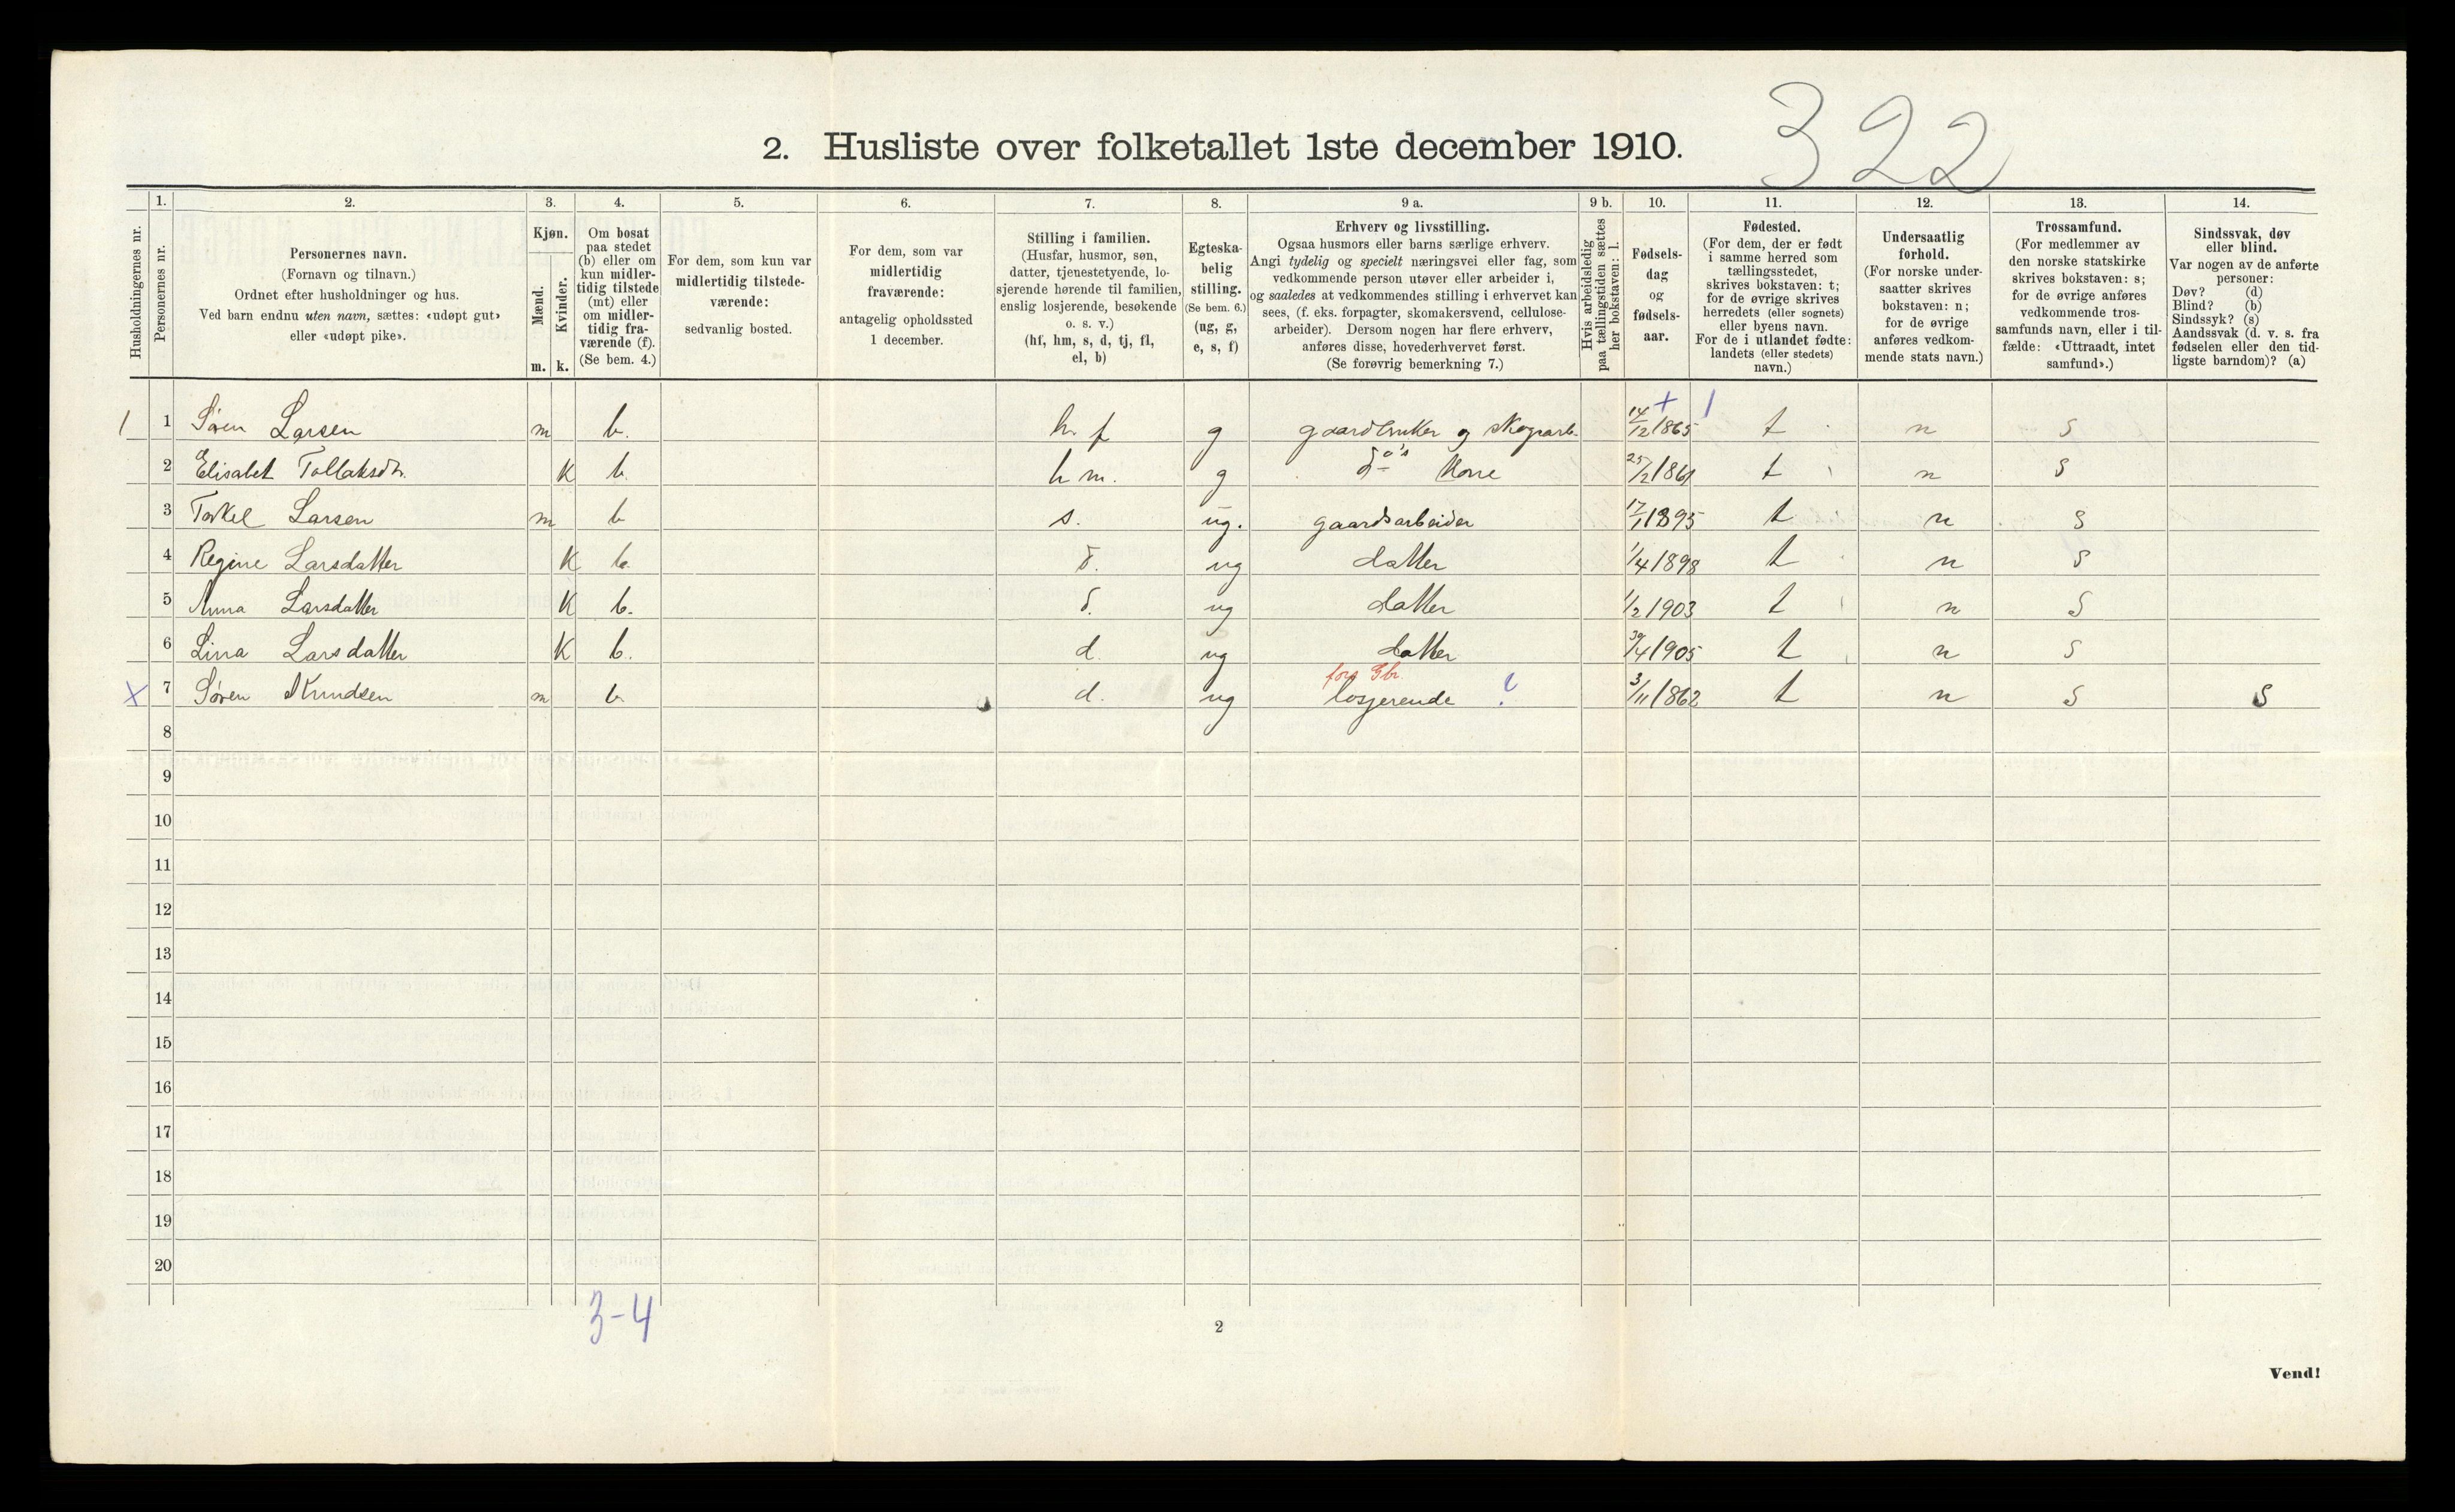 322
2. Husliste over folketallet 1ste december 1910.
Husholdningernes nr.
1. Personernes nr.
2. Personernes navn.
(Fornavn og tilnavn.)
Ordnet efter husholdninger og hus.
Ved barn endnu uten navn, sættes: «udøpt gut»
eller «udøpt pike».
3. Kjøn.
Mænd. m.
Kvinder. k.
4. Om bosat
paa stedet
(b) eller om
kun midler-
tidig tilstede
(mt) eller
om midler-
tidig fra-
værende (f).
(Se bem. 4.)
5. For dem, som kun var
midlertidig tilstede-
værende:
sedvanlig bosted.
6. For dem, som var
midlertidig
fraværende:
antagelig opholdssted
1 december.
7. Stilling i familien.
(Husfar, husmor, søn,
datter, tjenestetyende, lo-
sjerende hørende til familien,
enslig losjerende, besøkende
o. s. v.)
(hf, hm, s, d, tj, fl,
el, b)
8. Egteska-
belig
stilling.
(Se bem. 6.)
(ug, g,
e, s, f)
9 a. Erhverv og livsstilling.
Ogsaa husmors eller barns særlige erhverv.
Angi tydelig og specielt næringsvei eller fag, som
vedkommende person utøver eller arbeider i,
og saaledes at vedkommendes stilling i erhvervet kan
sees, (f. eks. forpagter, skomakersvend, cellulose-
arbeider). Dersom nogen har flere erhverv,
anføres disse, hovederhvervet først.
(Se forøvrig bemerkning 7.)
9 b. Hvis arbeidsledig
paa tællingstiden sættes
her bokstaven: l.
10. Fødsels-
dag
og
fødsels-
aar.
11. Fødested.
(For dem, der er født
i samme herred som
tællingsstedet,
skrives bokstaven: t;
for de øvrige skrives
herredets (eller sognets)
eller byens navn.
For de i utlandet fødte:
landets (eller stedets)
navn.)
12. Undersaatlig
forhold.
(For norske under-
saatter skrives
bokstaven: n;
for de øvrige
anføres vedkom-
mende stats navn.)
13. Trossamfund.
(For medlemmer av
den norske statskirke
skrives bokstaven: s;
for de øvrige anføres
vedkommende tros-
samfunds navn, eller i til-
fælde: «Uttraadt, intet
samfund».)
14. Sindssvak, døv
eller blind.
Var nogen av de anførte
personer:
Døv? (d)
Blind? (b)
Sindssyk? (s)
Aandssvak (d. v. s. fra
fødselen eller den tid-
ligste barndom)? (a)
1 1 Søren Larsen m b. h. f g gaardbruker og skogsarb. 14/12 1865 t n s
2 Elisabet Tollaksdtr. K b. h m. g do's Kone 25/2 1861 t n s
3 Torkel Larsen m b s. ug. gaardsarbeider 17/1 1895 t n s
4 Regine Larsdatter K b. d. ug datter 1/4 1898 t n s
5 Anna Larsdatter K b. d. ug datter 1/2 1903 t n s
6 Lina Larsdatter K b. d. ug datter 30/4 1905 t n s
fors
x 7 Søren Knudsen m b. d. ug losjerende 3/11 1862 t n s s
8
9
10
11
12
13
14
15
16
17
18
19
20
3-4
2
Vend!